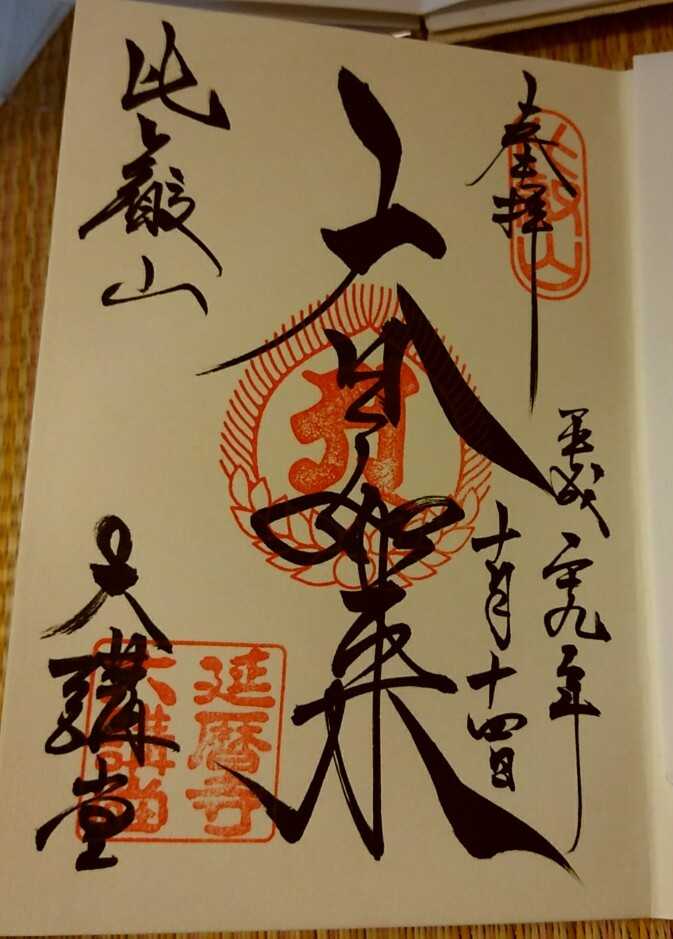 奉拝
比叡山
平成二十九年
十月十四日
大日如来
比叡山
大講堂
延暦寺
大講堂